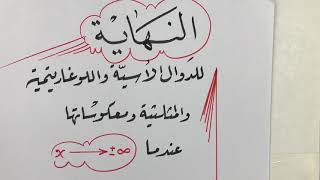 النهاية
للدوال الأسيّة واللوغاريتمية
والمثلثية ومعكوساتها
عندما x → ±∞